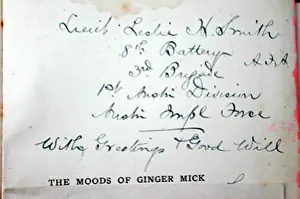 Lieut Leslie H. Smith
8th Battery A.F.A
3rd Brigade
1st Austn Division
Austn Impl Force
With Greetings & Good Will
THE MOODS OF GINGER MICK